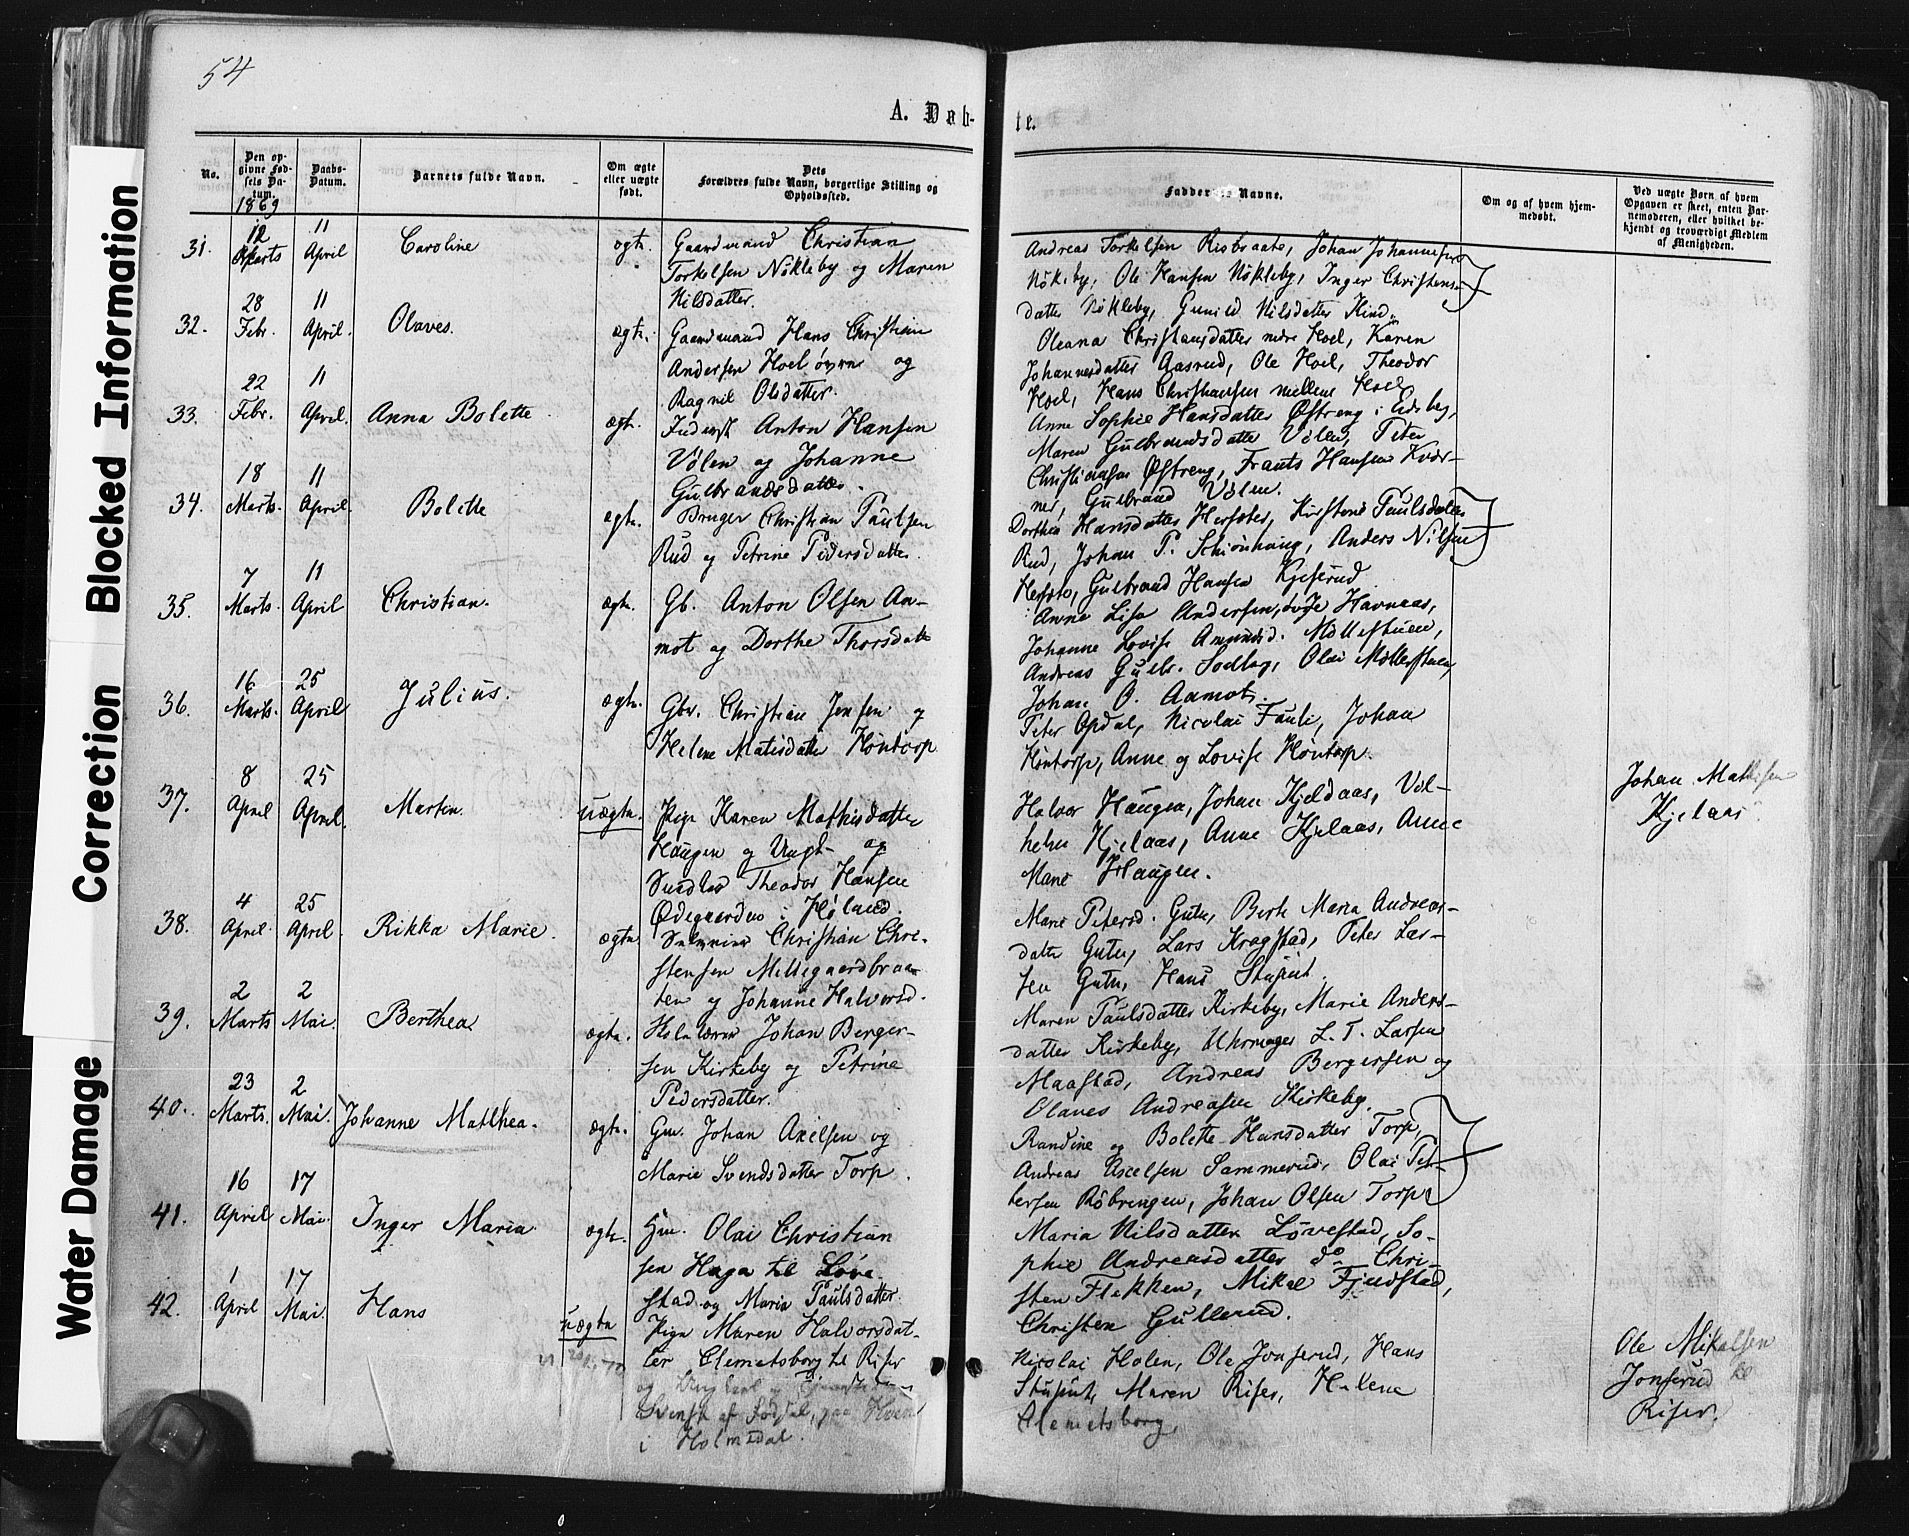 54
A. Døb-
te.
No.
Den op-
givne Fød-
sels Da-
tum.
1869
Daabs-
Datum.
Barnets fulde Navn.
Om ægte
eller uægte
født.
Dets
Forældres fulde Navn, borgerlige Stilling og
Opholdssted.
Faddernes Navne.
Om og af hvem hjem-
medøbt.
Ved uægte Børn af hvem
Opgaven er skeet, enten Bar-
nemoderen, eller hvilket be-
kjendt og troværdigt Medlem
af Menigheden.
31.
12
Marts
11
April
Caroline
ægte.
Gaardmand Christian
Torkelsen Nökleby og Maren
Nilsdatter.
Andreas Torkelsen Risbraate, Johan Johannesen
Nökleby, Ole Hansen Nökleby, Inger Christens-
datter Nökleby, Gunild Nilsdatter Rind.
32.
28
Febr.
11
April.
Olaves.
ægte.
Gaardmand Hans Christian
Andersen Hoel övre og
Ragnil Olsdatter.
Oleana Christiansdatter nedre Hoel, Karen
Johannesdatter Aasrud, Ole Hoel, Theodor
Hoel, Hans Christiansen mellem Hoel
33.
22
Febr.
11
April.
Anna Bolette
ægte.
Inderst Anton Hansen
Völen og Johanne
Gulbrandsdatter.
Anne Sophie Hansdatter Östreng i Eidsberg,
Maren Gulbrandsdatter Völen, Peter
Christiansen Östreng, Frants Hansen Kvær-
ner, Gulbrand Völen.
34.
18
Marts.
11
April.
Bolette
ægte.
Bruger Christian Paulsen
Rud og Petrine Pedersdatter.
Dorthea Hansdatter Herfster, Kirstine Paulsdatter
Rud, Johan P. Schiönhaug, Anders Nilsen
Gulbrand Hansen Kjeserud
35.
7
Marts.
11
April
Christian.
ægte.
Gb. Anton Olsen Aa-
mot og Dorthe Thorsdatter
Anne Lise Andersen, Havnaas,
Johanne Lovise Amundsd. Möllestuen,
Andreas Gulbr. Olai Möllerstuen,
Johan O. Aamot.
36.
16
Marts.
25
April
Julius.
ægte.
Gbr. Christian Jensen og
Helene Matisdatter Höntorp
Peter Opdal, Nicolai Fauli, Johan
Höntorp, Anne og Lovise Höntorp.
37.
8
April
25
April.
Marten
uægte.
Pige Karen Mathisdatter
Haugen og Ungk. og
Theodor Hansen
Ödegaarden i Höland.
Halvor Haugen, Johan Kjeldaas, Vil-
helm Kjelaas, Anne Kjelaas, Anne
Marie Haugen.
Johan Mathisen
Kjelaas
38.
4
April.
25
April.
Rikka Marie.
ægte
Christian Chri-
stensen Mellegaardbraa-
ten og Johanne Halvorsd.
Marie Petersd. Gutu, Berte Maria Andreas-
datter Gutu, Lars Kragstad, Peter Lar-
sen Gutu, Hans Stuput.
39.
2
Marts
2
Mai.
Berthea
ægte.
Skolelærer Johan Berger-
sen Kirkeby og Petrine
Pedersdatter.
Maren Paulsdatter Kirkeby, Marie Anders-
datter Kirkeby, Uhrmager L. T. Larsen
Maastad, Andreas Bergersen og
Olaves Andreasen Kirkeby.
40.
23
Marts.
2
Mai.
Johanne Mathea.
ægte.
Gm. Johan Axelsen og
Marie Svendsdatter Torp.
Randine og Bolette Hansdatter Torp,
Andreas Axelsen Sammerud, Olai Pet-
tersen Röbrengen, Johan Olsen Torp
41.
16
April
17
Mai.
Inger Maria
ægte.
Hm. Olai Christian
sen Haga til Löve
stad og Maria Paulsdatter
Maria Nilsdatter Lövestad, So-
phie Andreasdatter do. Chri-
sten Flekken, Mikal Fjudstad,
Christen Gullerud.
42.
1
April
17
Mai.
Hans
uægte
Pige Maren Halvorsdat-
ter Clemetsborg til Riser
og Ungkarl
Svensk af Födsel, paa
i Holmedal.
Nicolai Holen, Ole Jonserud, Hans
Stuput, Maren Riser, Helene
Clemetsborg,
Ole Mikalsen
Jonserud
Riser.
Water Damage Correction Blocked Information